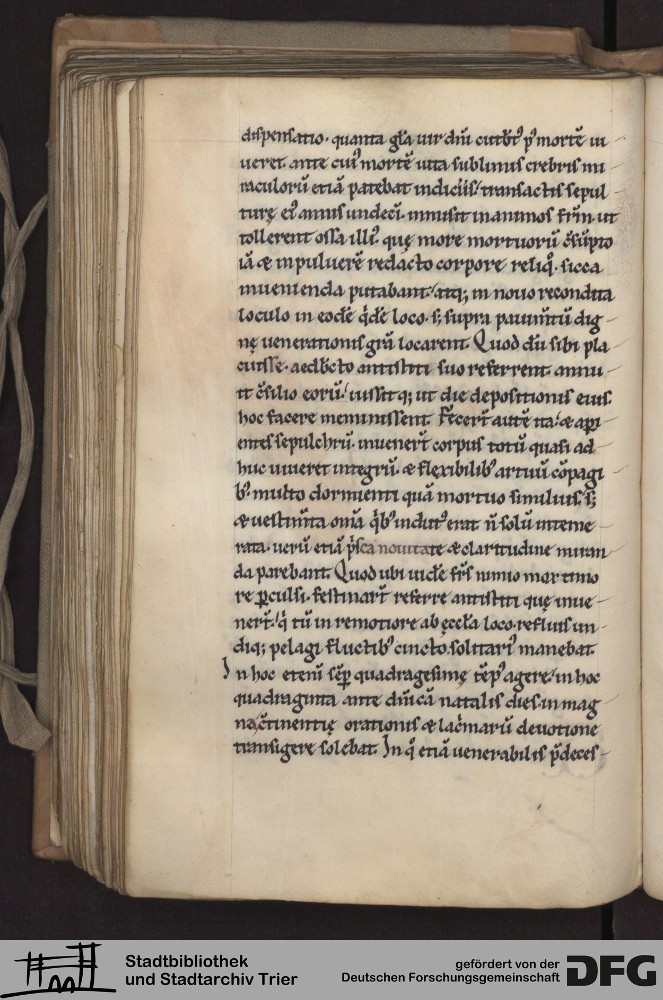 dispensatio. quanta gl̄a uir dn̄i cutb̄tꝰ pꝰ mortē ui
ueret. ante cuiꝰ mortē uita sublimis crebris mi
raculorū etiā patebat indiciis/ transactis sepul
turę eiꝰ annis undeci. inmisit in animos fr̄m. ut
tollerent ossa illiꝰ. quę more mortuorū c̄sūpto
iā & in puluerē redacto corpore reliqͦ. sicca
inuenienda putabant/ atq; in nouo recondita
loculo in eodē qͥdē loco. s; supra pauim̄tū dig
nę uenerationis gr̄a locarent. Quod dū sibi pla
cuisse. aedb̄cto antistiti suo referrent. annu
it c̄silio eorū/ iussitq; ut die depositionis eius.
hoc facere meminissent. Fecer̄t autē ita/ & api
entes sepulchrū. inuener̄t corpus totū quasi ad
huc uiueret integrū. & flexibilibꝰ artuū cōpagi
bꝰ multo dormienti quā mortuo similius. s;
& uestim̄ta om̄a qͥbꝰ indutꝰ erat n̄ solū inteme
rata. uerū etiā pͥsca nouitate & claritudine miran
da parebant. Quod ubi uidē fr̄s nimio mox timo
re ꝑculsi. festinar̄t referre antistiti quę inue
ner̄t/ qͥ tū in remotiore ab ęccl̄a loco. refluis un
diq; pelagi fluctibꝰ cincto. solitariꝰ manebat.
In hoc eteni sēp quadragesimę tēpꝰ agere/ in hoc
quadraginta ante dn̄icā natalis dies in mag
na c̄tinentię orationis & lac̄marū deuotione
transigere solebat. In qͦ etiā uenerabilis p̄deces
Stadtbibliothek
und Stadtarchiv Trier
gefördert von der
Deutschen Forschungsgemeinschaft
DFG